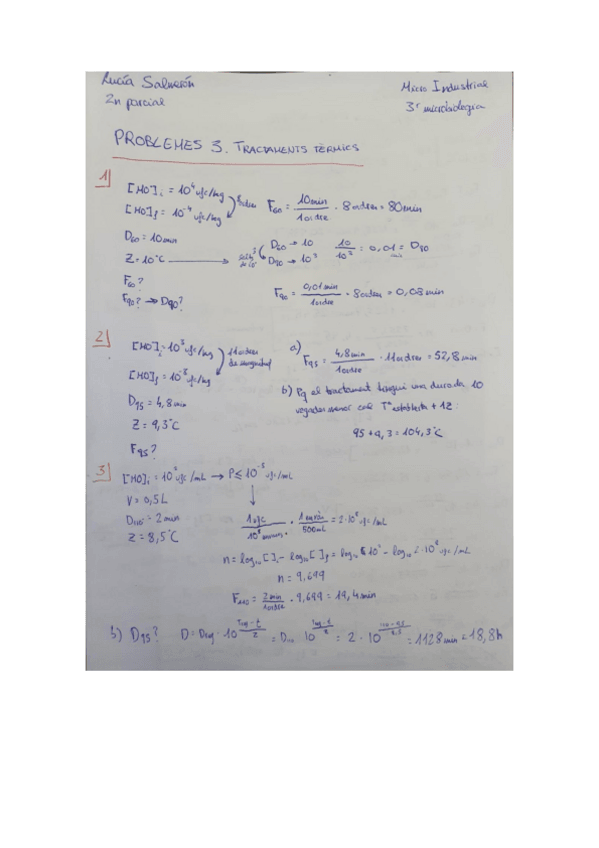 Lucía Salmerón
Micro Industrial
2n parcial
3r microbiologia
PROBLEMES 3. TRACTAMENTS TÈRMICS
1]
[MO]i = 10^4 ufc/mg
[MO]f = 10^-4 ufc/mg
F60 = 10 min / 1 ordre · 8 ordres = 80 min
D60 = 10 min
Z = 10°C
D60 → 10
D90 → 10^-2
10 / 10^3 = 0,01 = D90
min
F60?
F90? → D90?
F90 = 0,01 min / 1 ordre · 8 ordres = 0,08 min
2]
[MO]i = 10^3 ufc/mg
11 ordres de magnitud
[MO]f = 10^-8 ufc/mg
D95 = 4,8 min
Z = 9,3°C
F95?
a)
F95 = 4,8 min / 1 ordre · 11 ordres = 52,8 min
b) Pq el tractament tingui una durada 10
vegades menor cal Tª establerta + 1Z:
95 + 9,3 = 104,3°C
3]
[MO]i = /mL → P ≤ 10^-8 ufc/mL
V = 0,5L
D110 = 2 min
Z = 8,5°C
1 ufc / · 1 / 500mL = 2·10 ufc/mL
n = log10 []i - log10 []f = log10 - log10 ufc/mL
n = 9,699
F110 = 2 min / 1 ordre · 9,699 = 19,4 min
b) D95? D = Dref · 10^(Tref - t / z) = D · 10 = 2 · 10 = 1128 min = 18,8h